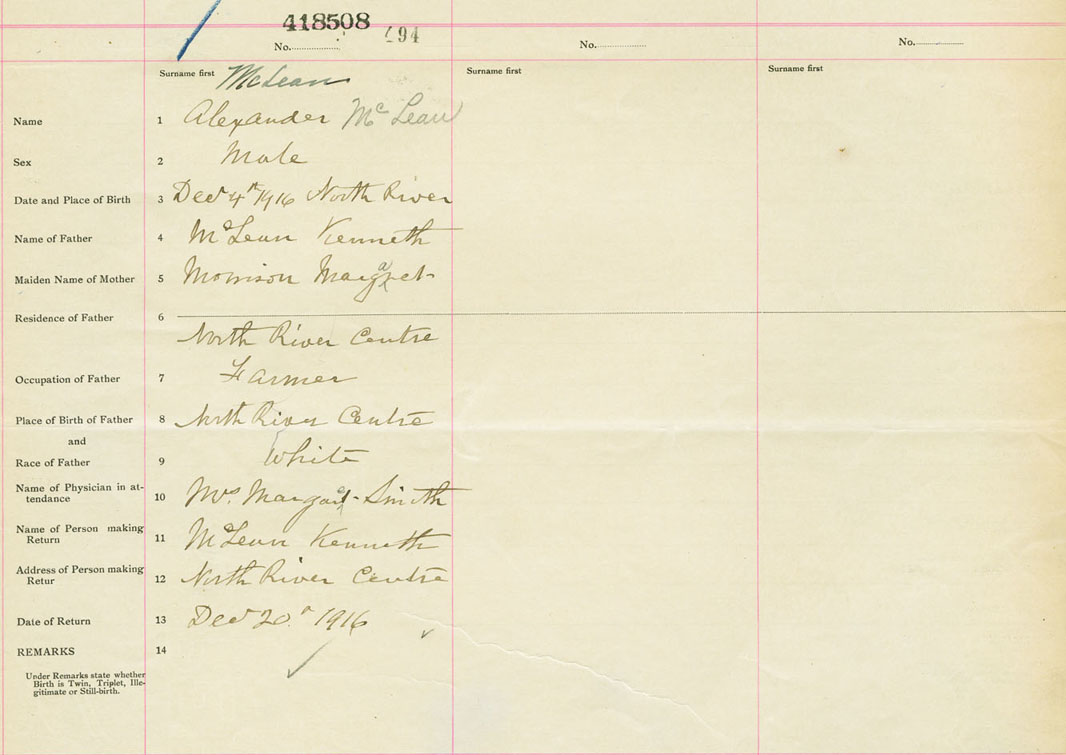 418508
No. 494
No.
No.
Surname first McLean
Surname first
Surname first
Name 1 Alexander McLean
Sex 2 Male
Date and Place of Birth 3 Decr 4th 1916 North River
Name of Father 4 McLean Kenneth
Maiden Name of Mother 5 Morrison Margaret
Residence of Father 6
North River Centre
Occupation of Father 7 Farmer
Place of Birth of Father 8 North River Centre
and
Race of Father 9 White
Name of Physician in at-
tendance 10 Mrs. Margaret Smith
Name of Person making
Return 11 McLean Kenneth
Address of Person making
Retur 12 North River Centre
Date of Return 13 Decr 20th 1916
REMARKS 14
Under Remarks state whether
Birth is Twin, Triplet, Ille-
gitimate or Still-birth.